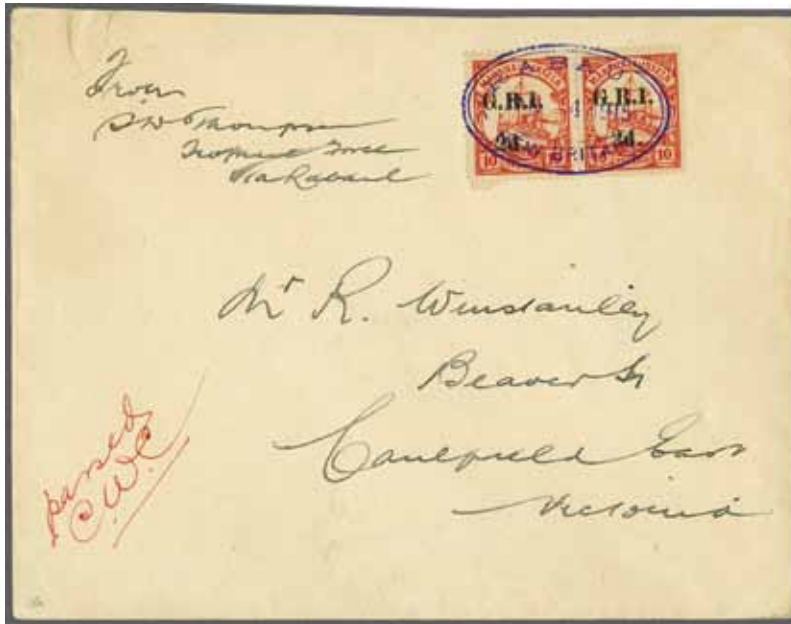 From
S W Thompson
Tropical Force
Via Rabaul
G.R.I. G.R.I.
2d.
10 10 10
Mr R. Winstanley
Beaver St
Caulfield East
Victoria
passed
C.W.C